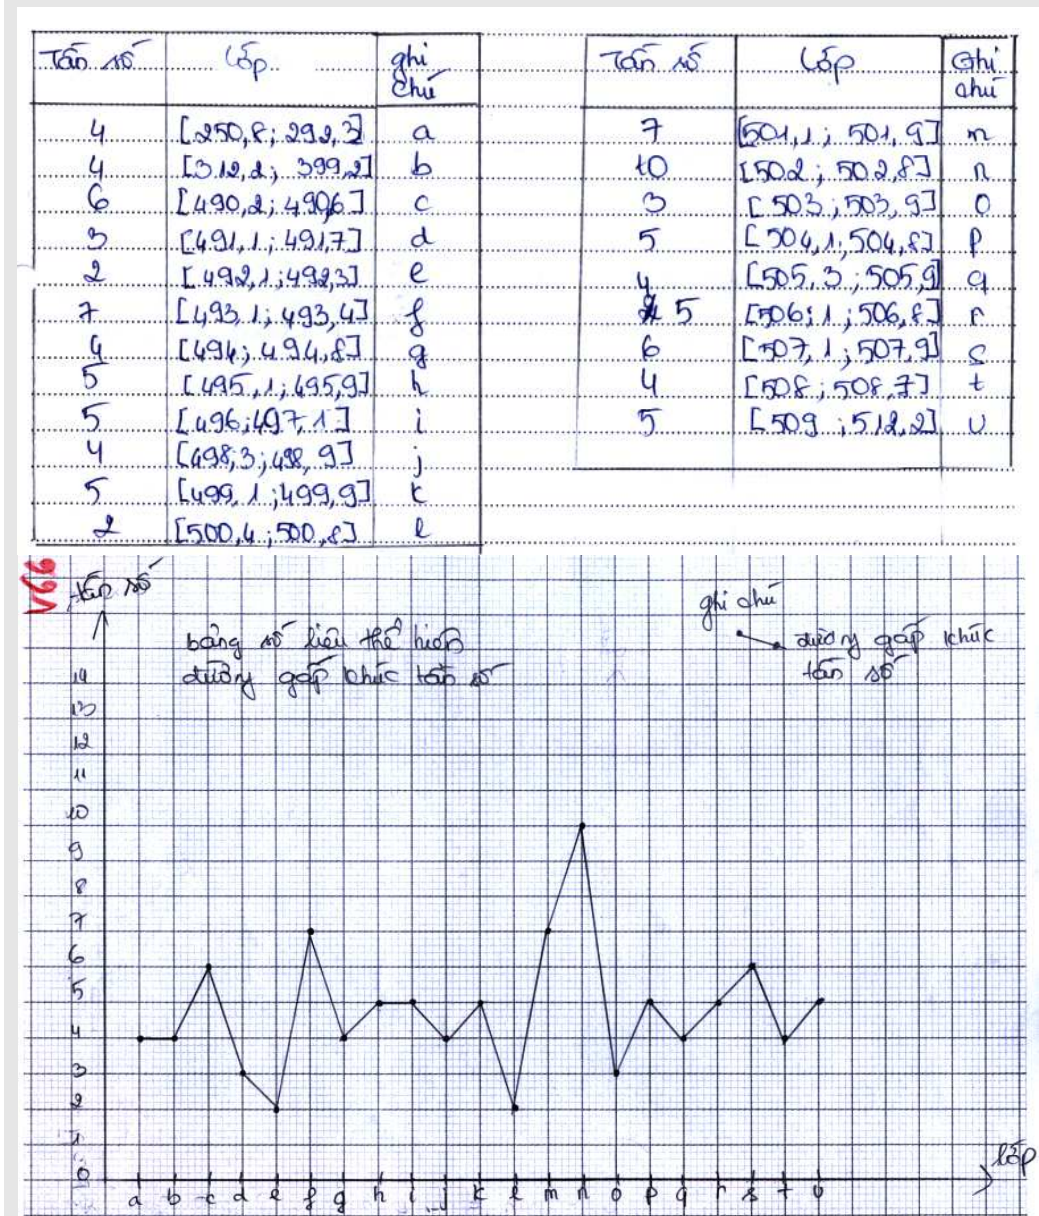 Tần số Lớp ghi chú
4 [250,8; 292,3] a
4 [312,2; 399,2] b
6 [490,2; 490,6] c
3 [491,1; 491,7] d
2 [492,1; 492,3] e
7 [493,1; 493,4] f
4 [494; 494,8] g
5 [495,1; 495,9] h
5 [496; 497,1] i
4 [498,3; 498,9] j
5 [499,1; 499,9] k
2 [500,4; 500,8] l
Tần số Lớp Ghi chú
7 [501,1; 501,9] m
10 [502; 502,8] n
3 [503; 503,9] o
5 [504,1; 504,8] p
4 [505,3; 505,9] q
5 [506;1; 506,8] r
6 [507,1; 507,9] s
4 [508; 508,7] t
5 [509; 512,2] u
V66
tần số
bảng số liệu thể hiện
đường gấp khúc tần số
ghi chú
đường gấp khúc
tần số
14
13
12
11
10
9
8
7
6
5
4
3
2
1
0
a b c d e f g h i j k l m n o p q r s t u
lớp